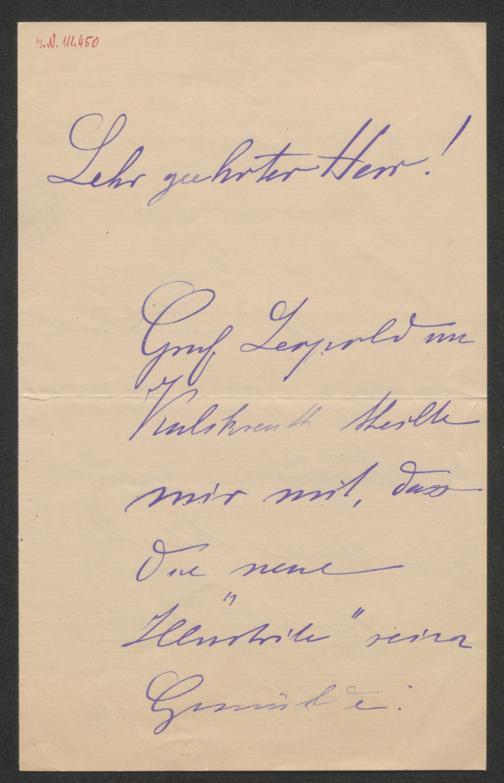 I.N. 111.450
Sehr geehrter Herr!
Graf Leopold von
Kalkreuth theilte
mir mit, dass
die neue
"Illustrirte" seine
Gemälde: